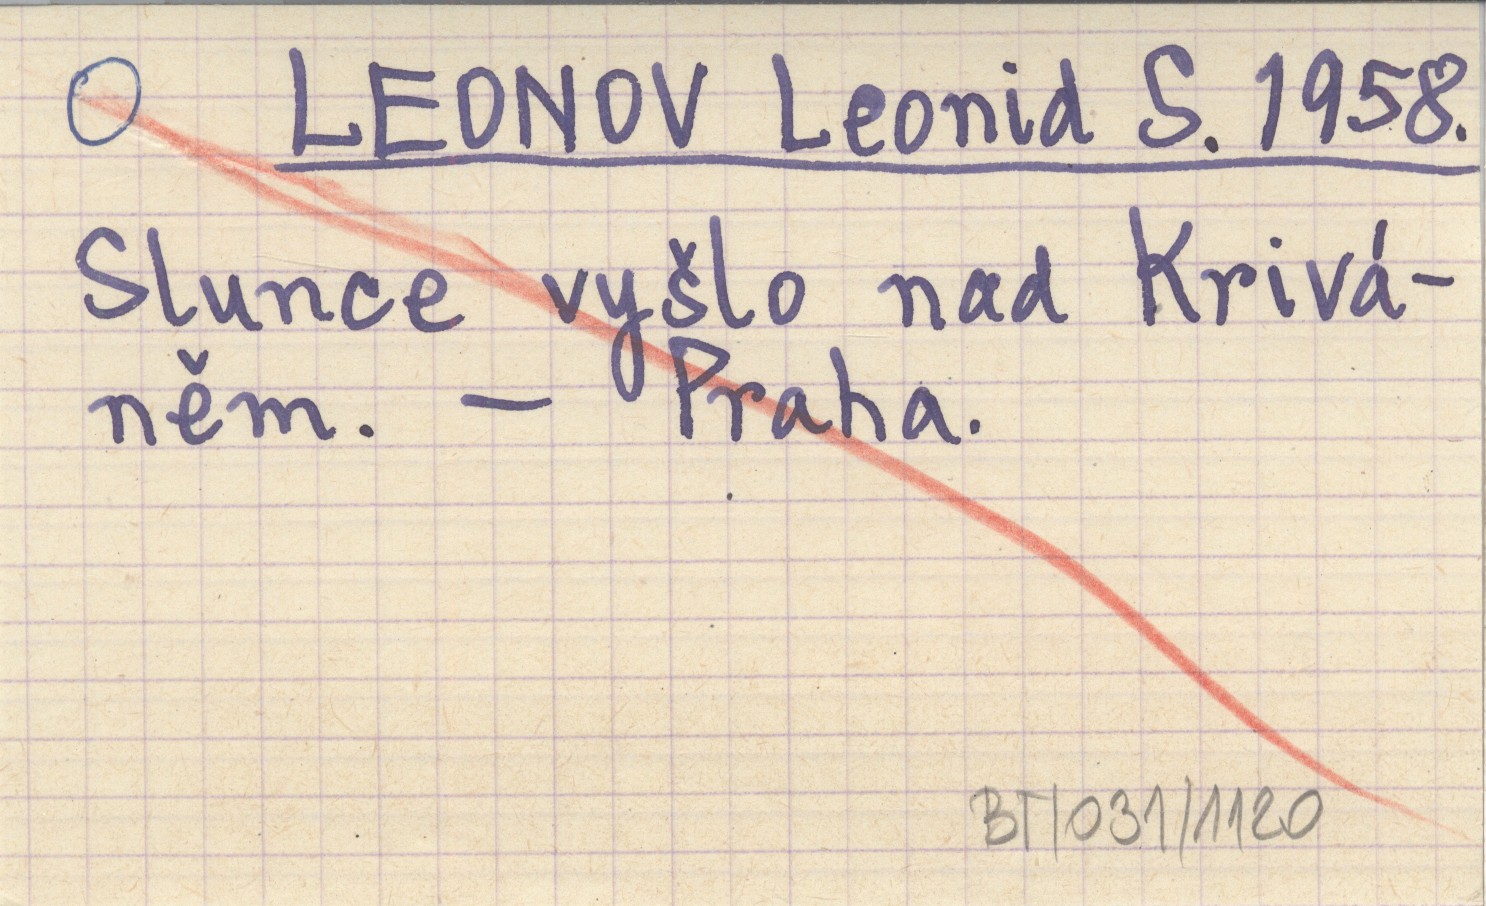 O LEONOV Leonid S. 1958.
Slunce vyšlo nad Krivá-
něm. — Praha.
BT/031/1120